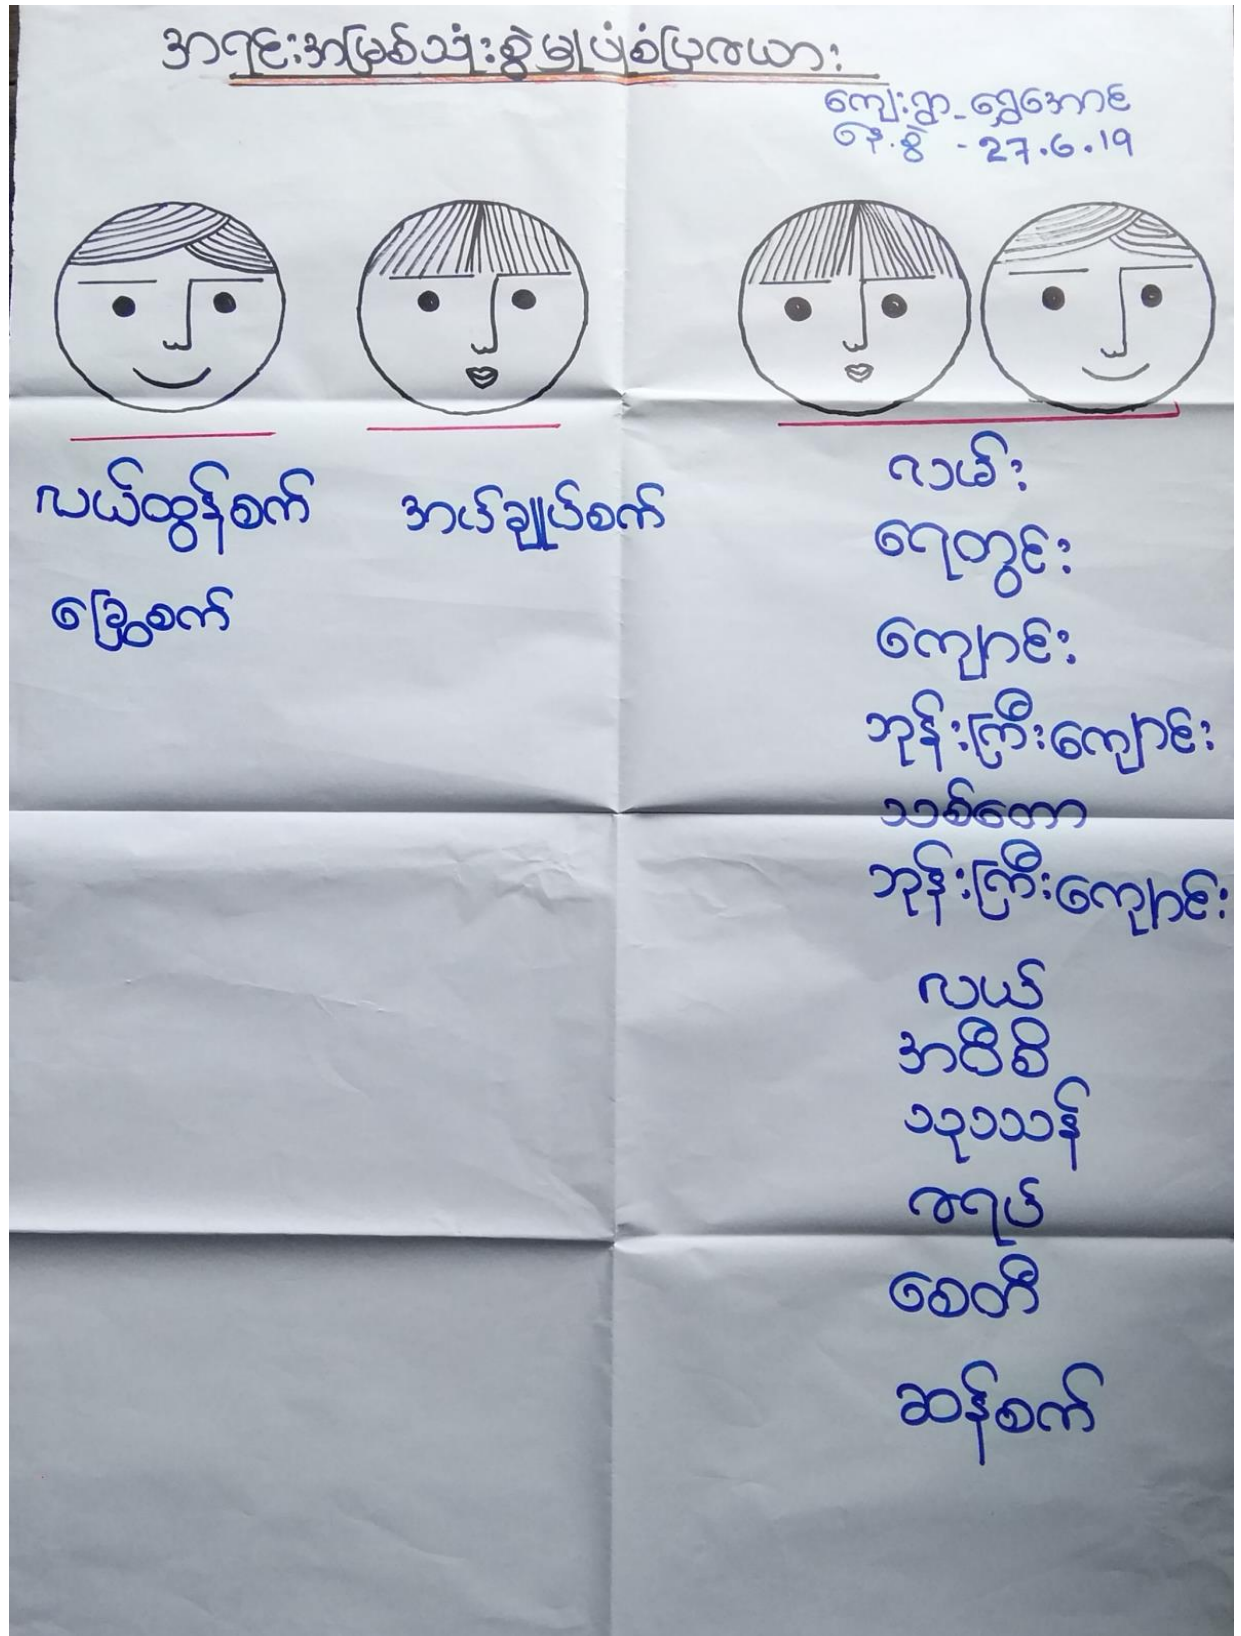 အရင်းအမြစ်သုံးစွဲမှုပုံစံပြဇယား
ကျေးရွာ - ရွှေအောင်
နေ့စွဲ - 27.6.19
လယ်ထွန်စက်
ခြွေစက်
အပ်ချုပ်စက်
လမ်း
ရေတွင်း
ကျောင်း
ဘုန်းကြီးကျောင်း
သစ်တော
ဘုန်းကြီးကျောင်း
လယ်
အဝီစိ
သုသာန်
ဇရပ်
စေတီ
ဆန်စက်